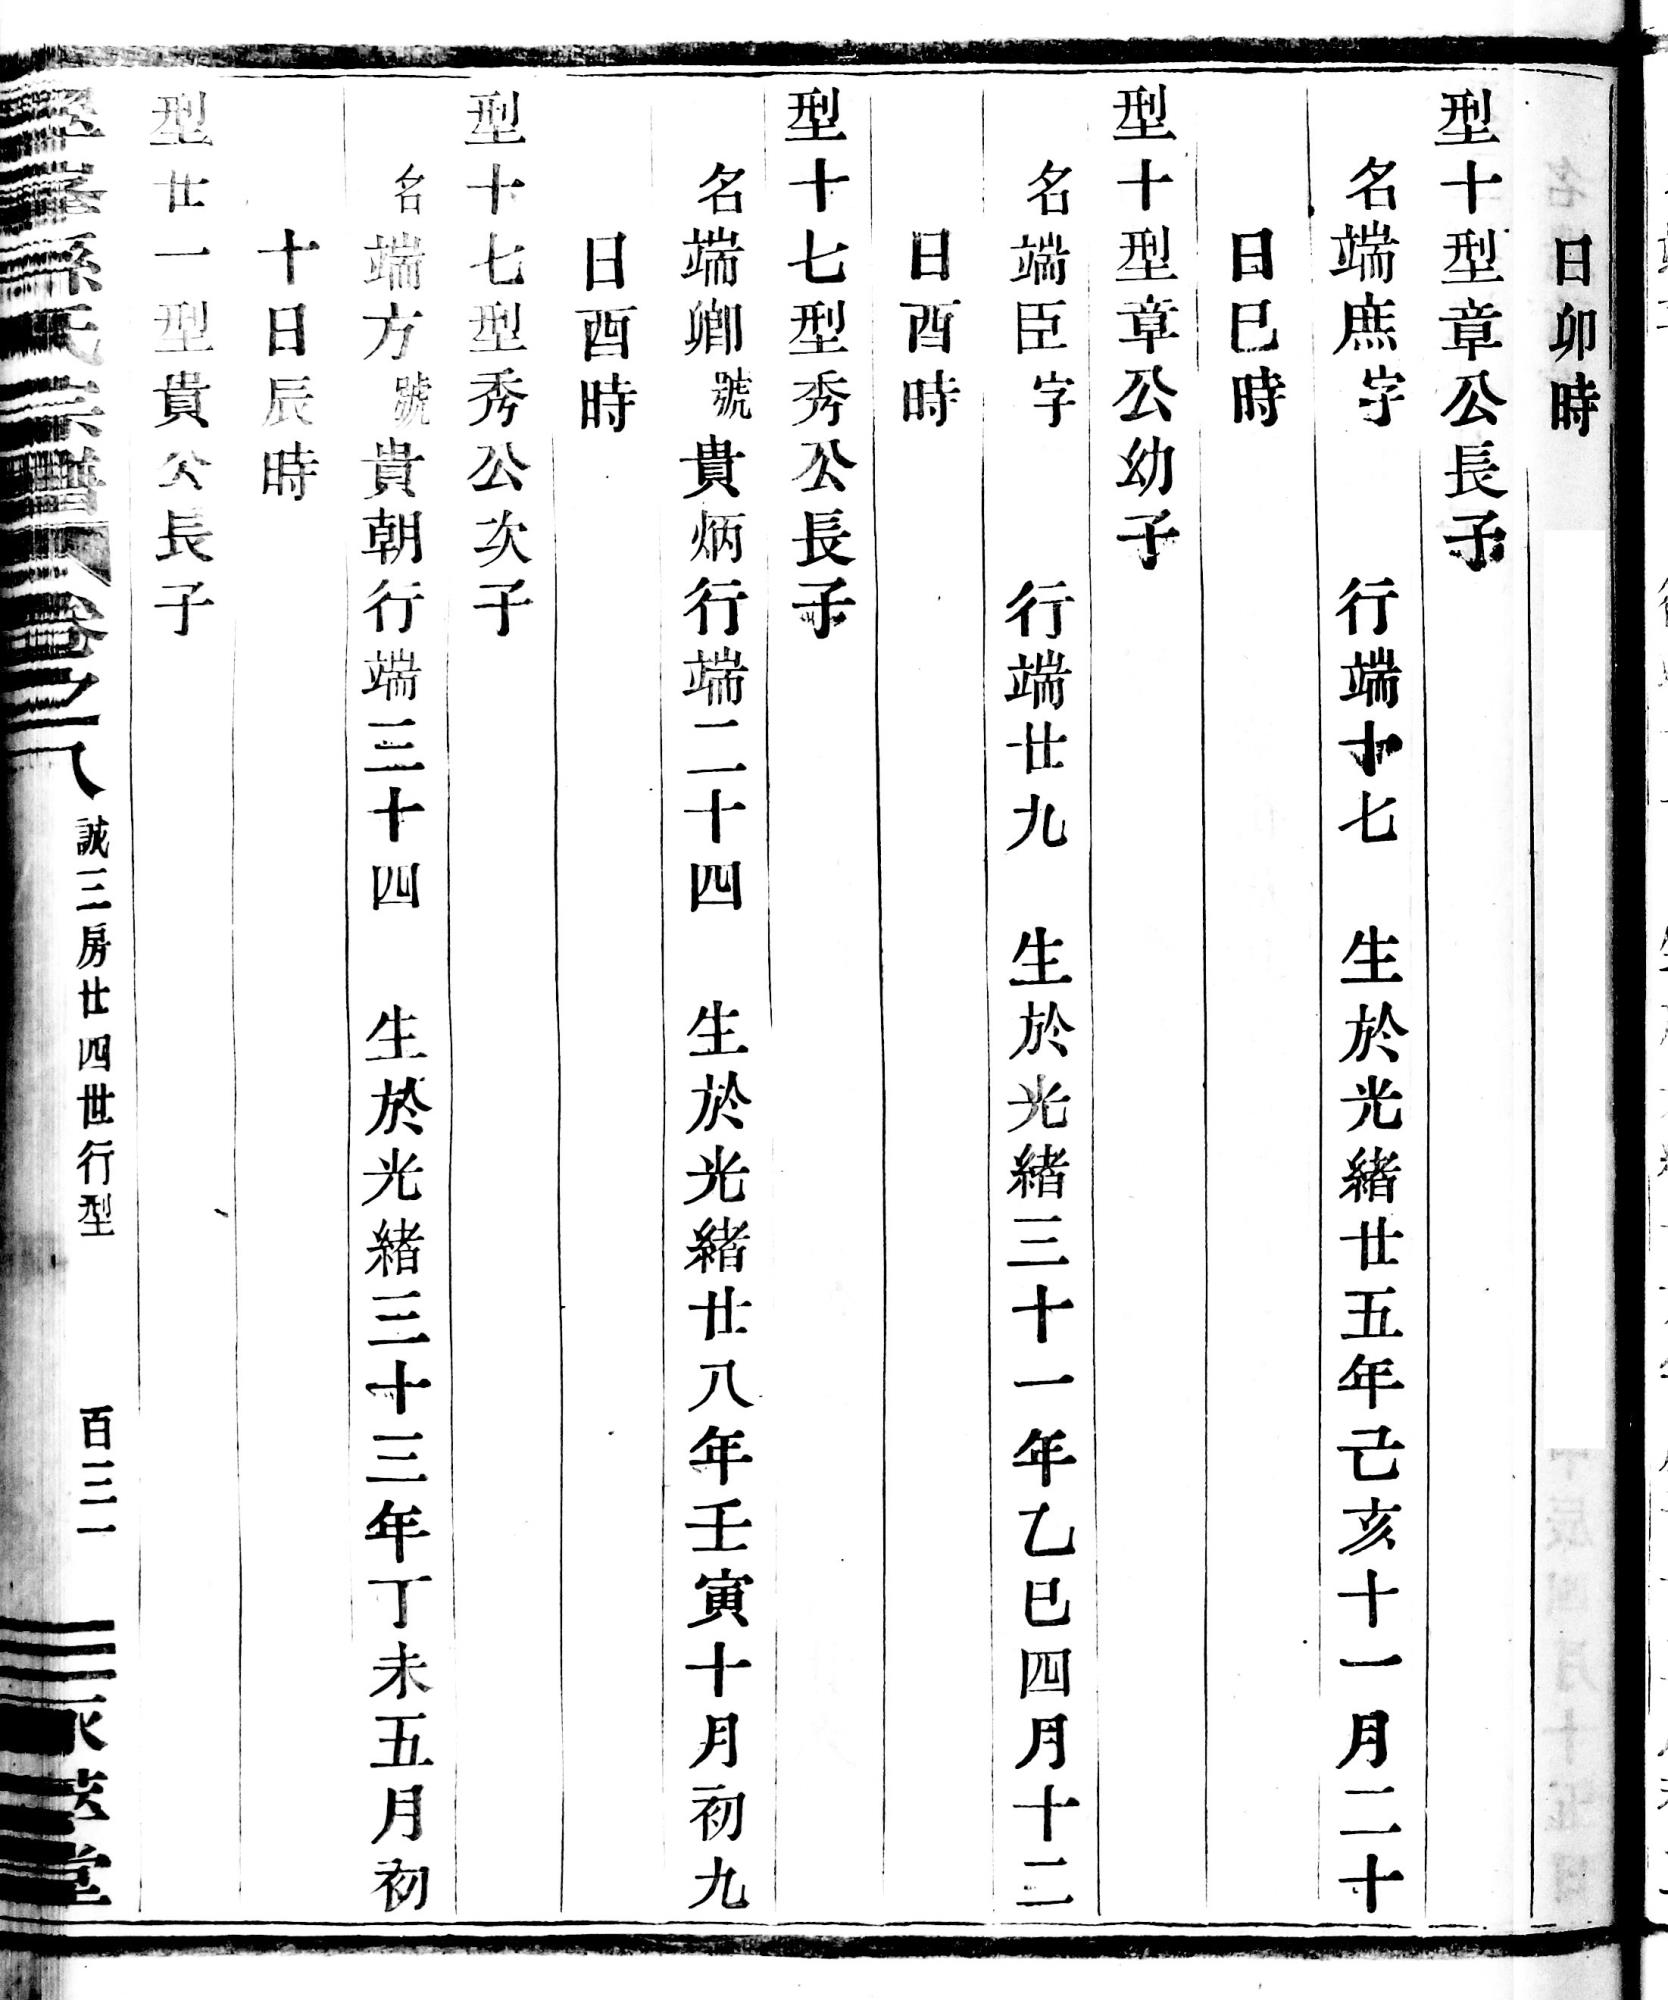 日卯時
型十型章公長子
名端庶字 行端十七 生於光緒廿五年己亥十一月二十
日巳時
型十型章公幼子
名端臣字 行端廿九 生於光緒三十一年乙巳四月十二
日酉時
型十七型秀公長子
名端卿號貴炳行端二十四 生於光緒廿八年壬寅十月初九
日酉時
型十七型秀公次子
名端方號貴朝行端三十四 生於光緒三十三年丁未五月初
十日辰時
型廿一型貴公長子
孫氏宗譜 卷之八 誠三房廿四世行型 百三一 堂